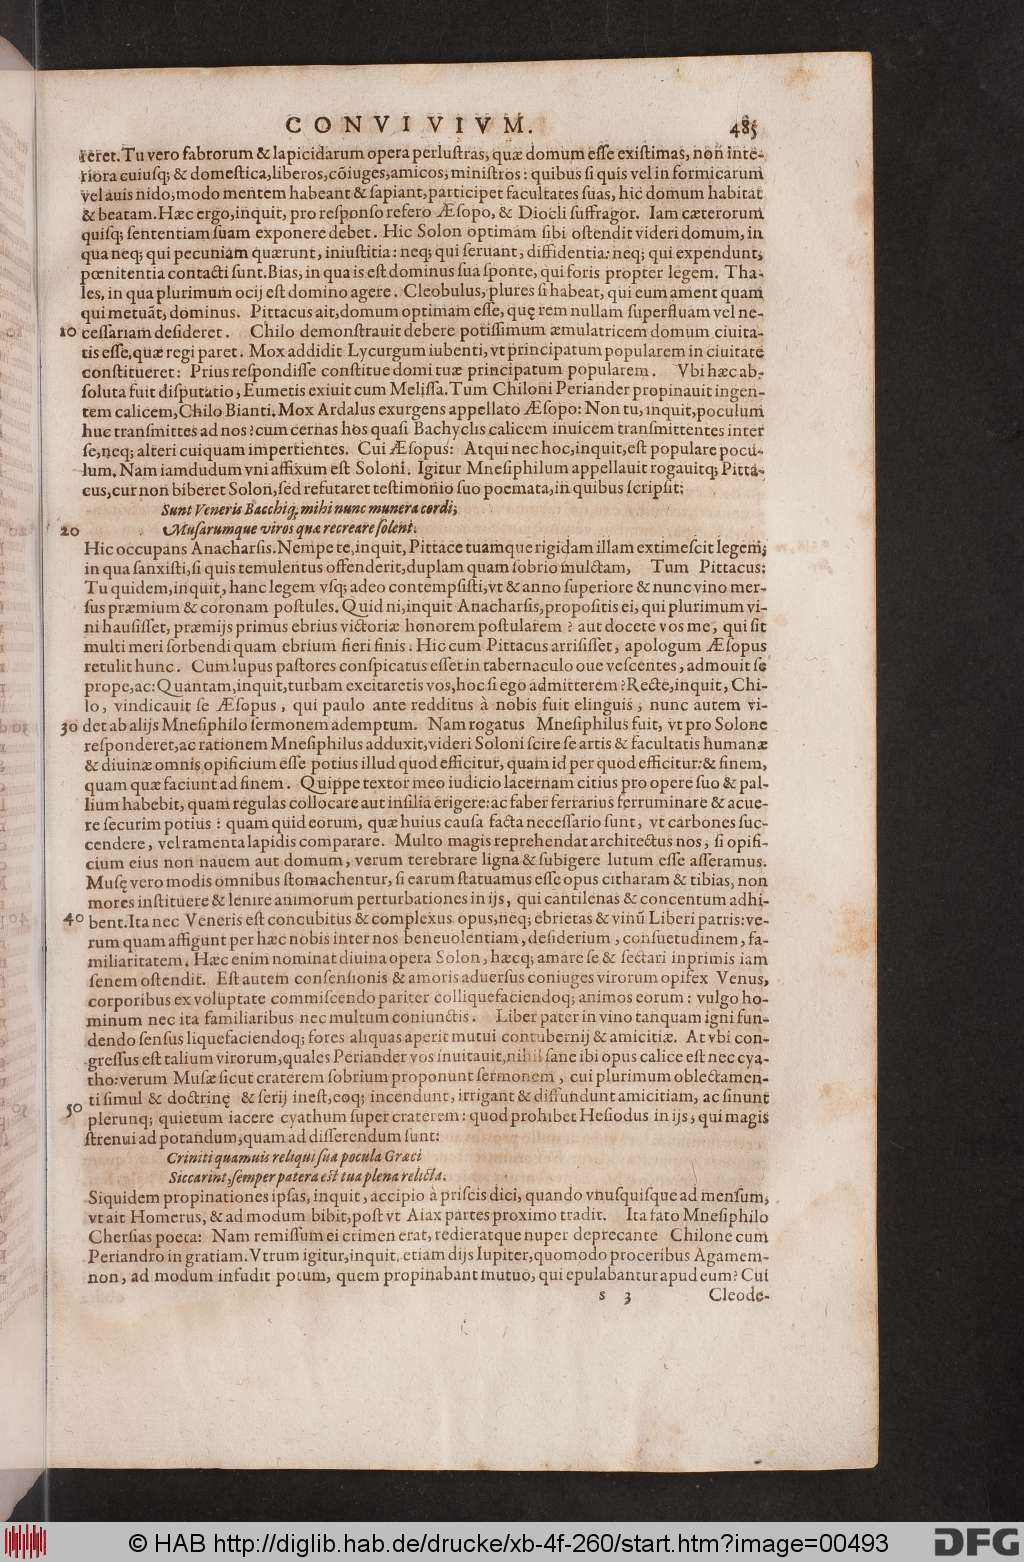 CONVIVIVM. 485
reret. Tu vero fabrorum & lapicidarum opera perlustras, quæ domum esse existimas, non inte-
riora cuiusq; & domestica, liberos, cõiuges, amicos, ministros: quibus si quis vel in formicarum
vel auis nido, modo mentem habeant & sapiant, participet facultates suas, hic domum habitat
& beatam. Hæc ergo, inquit, pro responso refero Æsopo, & Diocli suffragor. Iam cæterorum
quisq; sententiam suam exponere debet. Hic Solon optimam sibi ostendit videri domum, in
qua neq; qui pecuniam quærunt, iniustitia: neq; qui seruant, diffidentia: neq; qui expendunt,
pœnitentia contacti sunt. Bias, in qua is est dominus sua sponte, qui foris propter legem. Tha-
les, in qua plurimum ocij est domino agere. Cleobulus, plures si habeat, qui eum ament quam
qui metuãt, dominus. Pittacus ait, domum optimam esse, quę rem nullam superfluam vel ne-
10 cessariam desideret. Chilo demonstrauit debere potissimum æmulatricem domum ciuita-
tis esse, quæ regi paret. Mox addidit Lycurgum iubenti, vt principatum popularem in ciuitate
constitueret: Prius respondisse constitue domi tuæ principatum popularem. Vbi hæc ab-
soluta fuit disputatio, Eumetis exiuit cum Melissa. Tum Chiloni Periander propinauit ingen-
tem calicem, Chilo Bianti. Mox Ardalus exurgens appellato Æsopo: Non tu, inquit, poculum
huc transmittes ad nos? cum cernas hos quasi Bachyclis calicem inuicem transmittentes inter
se, neq; alteri cuiquam impertientes. Cui Æsopus: Atqui nec hoc, inquit, est populare pocu-
lum. Nam iamdudum vni affixum est Soloni. Igitur Mnesiphilum appellauit rogauitq; Pitta-
cus, cur non biberet Solon, sed refutaret testimonio suo poemata, in quibus scripsit:
Sunt Veneris Bacchiq; mihi nunc munera cordi,
20 Musarumque viros quæ recreare solent.
Hic occupans Anacharsis. Nempe te, inquit, Pittace tuamque rigidam illam extimescit legem,
in qua sanxisti, si quis temulentus offenderit, duplam quam sobrio mulctam, Tum Pittacus:
Tu quidem, inquit, hanc legem vsq; adeo contempsisti, vt & anno superiore & nunc vino mer-
sus præmium & coronam postules. Quid ni, inquit Anacharsis, propositis ei, qui plurimum vi-
ni hausisset, præmijs primus ebrius victoriæ honorem postularem? aut docete vos me, qui sit
multi meri sorbendi quam ebrium fieri finis. Hic cum Pittacus arrisisset, apologum Æsopus
retulit hunc. Cum lupus pastores conspicatus esset in tabernaculo oue vescentes, admouit se
prope, ac: Quantam, inquit, turbam excitaretis vos, hoc si ego admitterem? Recte, inquit, Chi-
lo, vindicauit se Æsopus, qui paulo ante redditus à nobis fuit elinguis, nunc autem vi-
30 det ab alijs Mnesiphilo sermonem ademptum. Nam rogatus Mnesiphilus fuit, vt pro Solone
responderet, ac rationem Mnesiphilus adduxit, videri Soloni scire se artis & facultatis humanæ
& diuinæ omnis opificium esse potius illud quod efficitur, quam id per quod efficitur: & finem,
quam quæ faciunt ad finem. Quippe textor meo iudicio lacernam citius pro opere suo & pal-
lium habebit, quam regulas collocare aut insilia erigere: ac faber ferrarius ferruminare & acue-
re securim potius: quam quid eorum, quæ huius causa facta necessario sunt, vt carbones suc-
cendere, vel ramenta lapidis comparare. Multo magis reprehendat architectus nos, si opifi-
cium eius non nauem aut domum, verum terebrare ligna & subigere lutum esse asseramus.
Musę vero modis omnibus stomachentur, si earum statuamus esse opus citharam & tibias, non
mores instituere & lenire animorum perturbationes in ijs, qui cantilenas & concentum adhi-
40 bent. Ita nec Veneris est concubitus & complexus opus, neq; ebrietas & vinũ Liberi patris: ve-
rum quam affigunt per hæc nobis inter nos beneuolentiam, desiderium, consuetudinem, fa-
miliaritatem. Hæc enim nominat diuina opera Solon, hæcq; amare se & sectari inprimis iam
senem ostendit. Est autem consensionis & amoris aduersus coniuges virorum opifex Venus,
corporibus ex voluptate commiscendo pariter colliquefaciendoq; animos eorum: vulgo ho-
minum nec ita familiaribus nec multum coniunctis. Liber pater in vino tanquam igni fun-
dendo sensus liquefaciendoq; fores aliquas aperit mutui contubernij & amicitiæ. At vbi con-
gressus est talium virorum, quales Periander vos inuitauit, nihil sane ibi opus calice est nec cya-
tho: verum Musæ sicut craterem sobrium proponunt sermonem, cui plurimum oblectamen-
ti simul & doctrinę & serij inest, eoq; incendunt, irrigant & diffundunt amicitiam, ac sinunt
50 plerunq; quietum iacere cyathum super craterem: quod prohibet Hesiodus in ijs, qui magis
strenui ad potandum, quam ad disserendum sunt:
Criniti quamuis reliqui sua pocula Græci
Siccarint, semper patera est tua plena relicta.
Siquidem propinationes ipsas, inquit, accipio à priscis dici, quando vnusquisque ad mensum,
vt ait Homerus, & ad modum bibit, post vt Aiax partes proximo tradit. Ita fato Mnesiphilo
Chersias poeta: Nam remissum ei crimen erat, redieratque nuper deprecante Chilone cum
Periandro in gratiam. Vtrum igitur, inquit, etiam dijs Iupiter, quomodo proceribus Agamem-
non, ad modum infudit potum, quem propinabant mutuo, qui epulabantur apud eum? Cui
s 3 Cleode-
© HAB http://diglib.hab.de/drucke/xb-4f-260/start.htm?image=00493 DFG